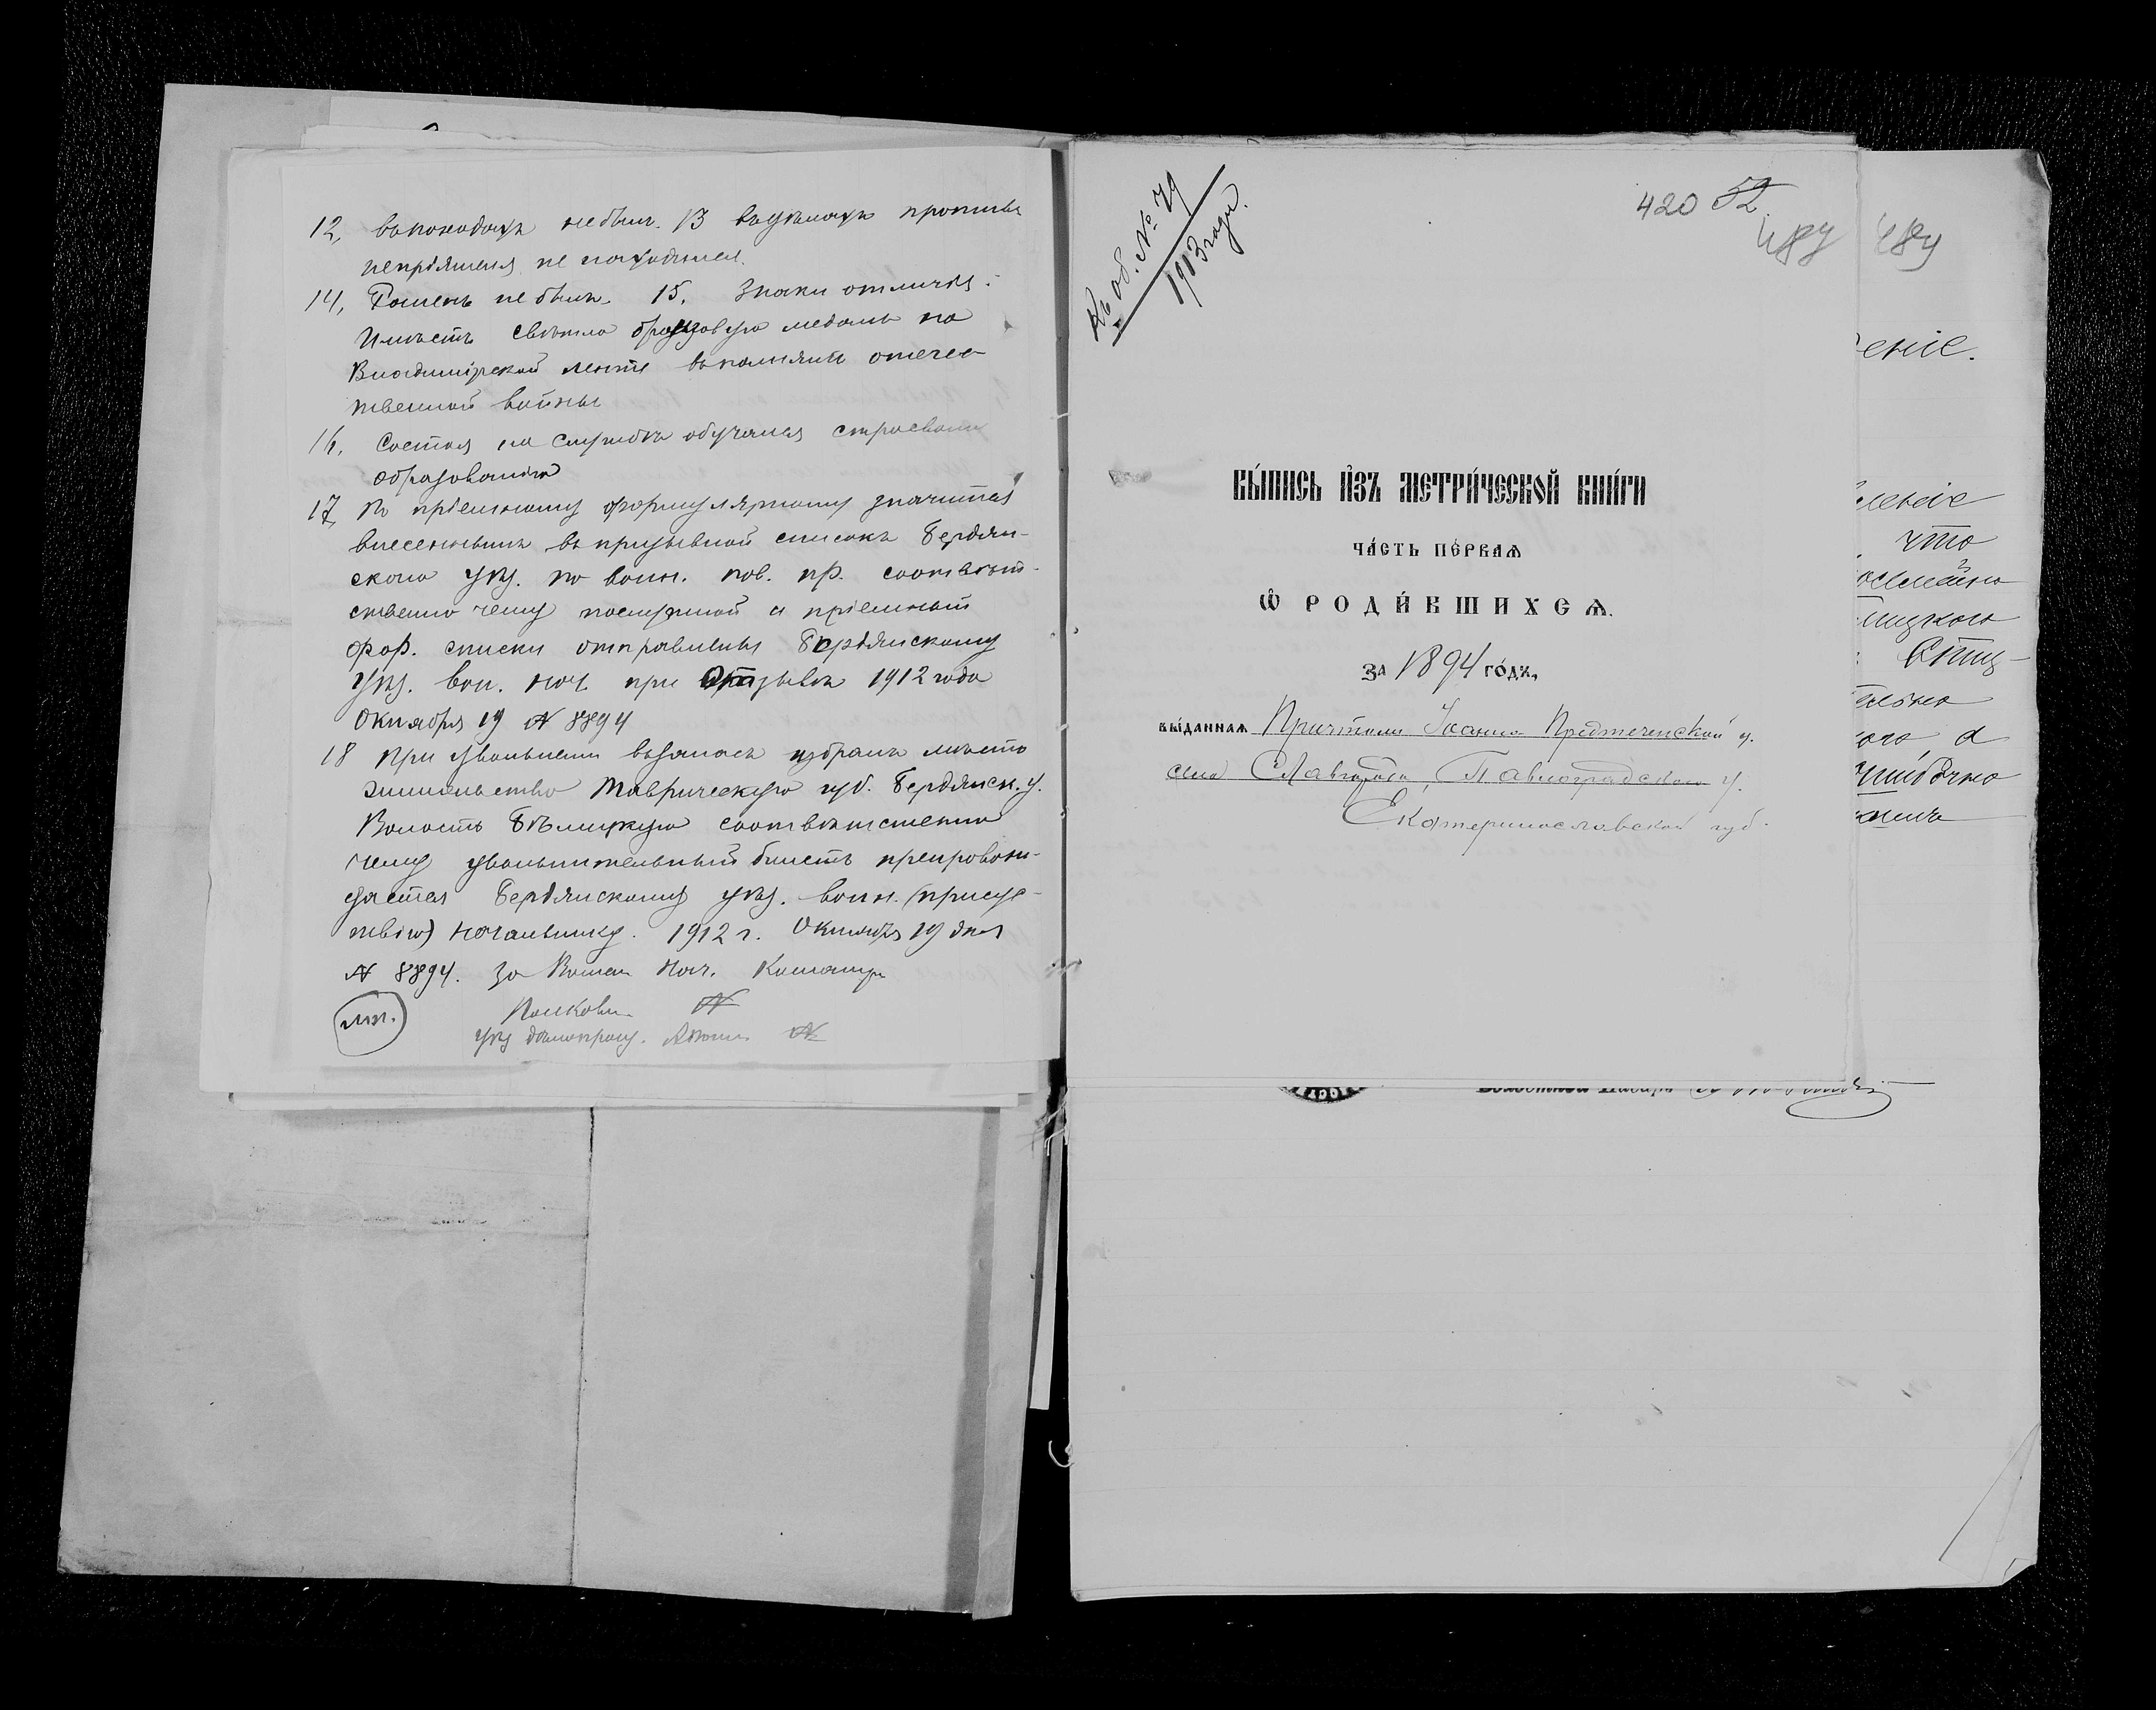 12, въпоходахъ небылъ. 13 въдѣлахъ противъ
непріятеля не находился.
14, Раненъ не былъ. 15. Знаки отличія:
Имѣетъ свѣтло бронзовую медаль на
Владимірской лентѣ въ память отечес-
твенной войны
16, Состоя на службѣ обучался строевому
образованію
17, По пріемному формулярному значится
внесеннымъ въ призывной списокъ Бердян-
скаго уѣз. по воин. пов. пр. соотвѣт-
ственно чему послужной и пріемный
фор. списки отправлены Бердянскому
уѣз. вои. нач. при отзывѣ 1912 года
Октября 19 № 8894
18 При увольненіи въ запасъ избралъ мѣсто
жительство Таврическую губ. Бердянск. у.
Волость Бѣлицкую соотвѣтственно
чему увольнительный билетъ препровож-
дается Бердянскому уѣз. воин. (присут-
ствію) начальнику. 1912 г. Октября 19 дня
№ 8894. За Воин. Нач.
мп. Полковн.
уѣз дѣлопроиз.
Къ об. № 79
1913 года.
420 52
484 484
ВЫ́ПИСЬ И҆ЗЪ МЕТРИ́ЧЕСКОЙ КНИ́ГИ
ЧА́СТЬ ПЕ́РВАѦ
Ѡ҆ РОДИ́ВШИХСѦ.
ЗА 1894 ГО́ДЪ,
ВЫ́ДАННАѦ Причтомъ Іоанно-Предтеченской ц.
села Славгорода, Павлоградскаго у.
Екатеринославской губ.
еніе.
что
а
Волостной Писарь